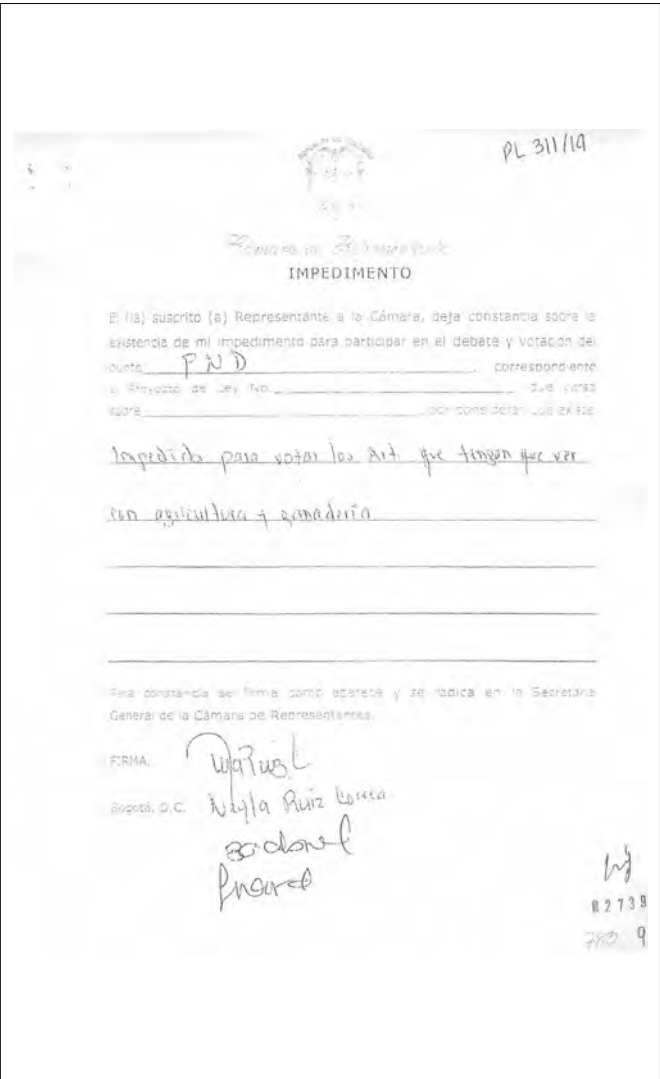 PL 311/19
REPÚBLICA DE COLOMBIA
IMPEDIMENTO
El (la) suscrito (a) Representante a la Cámara, deja constancia sobre la
existencia de mi impedimento para participar en el debate y votación del
punto PND correspondiente
al Proyecto de Ley No. que versa
sobre por considerar que existe
Impedido para votar los Art. que tengan que ver
con agricultura y ganadería
Para constancia se firma como aparece y se radica en la Secretaría
General de la Cámara de Representantes.
FIRMA.
Bogotá, D.C. Neyla Ruiz Correa
2739
9